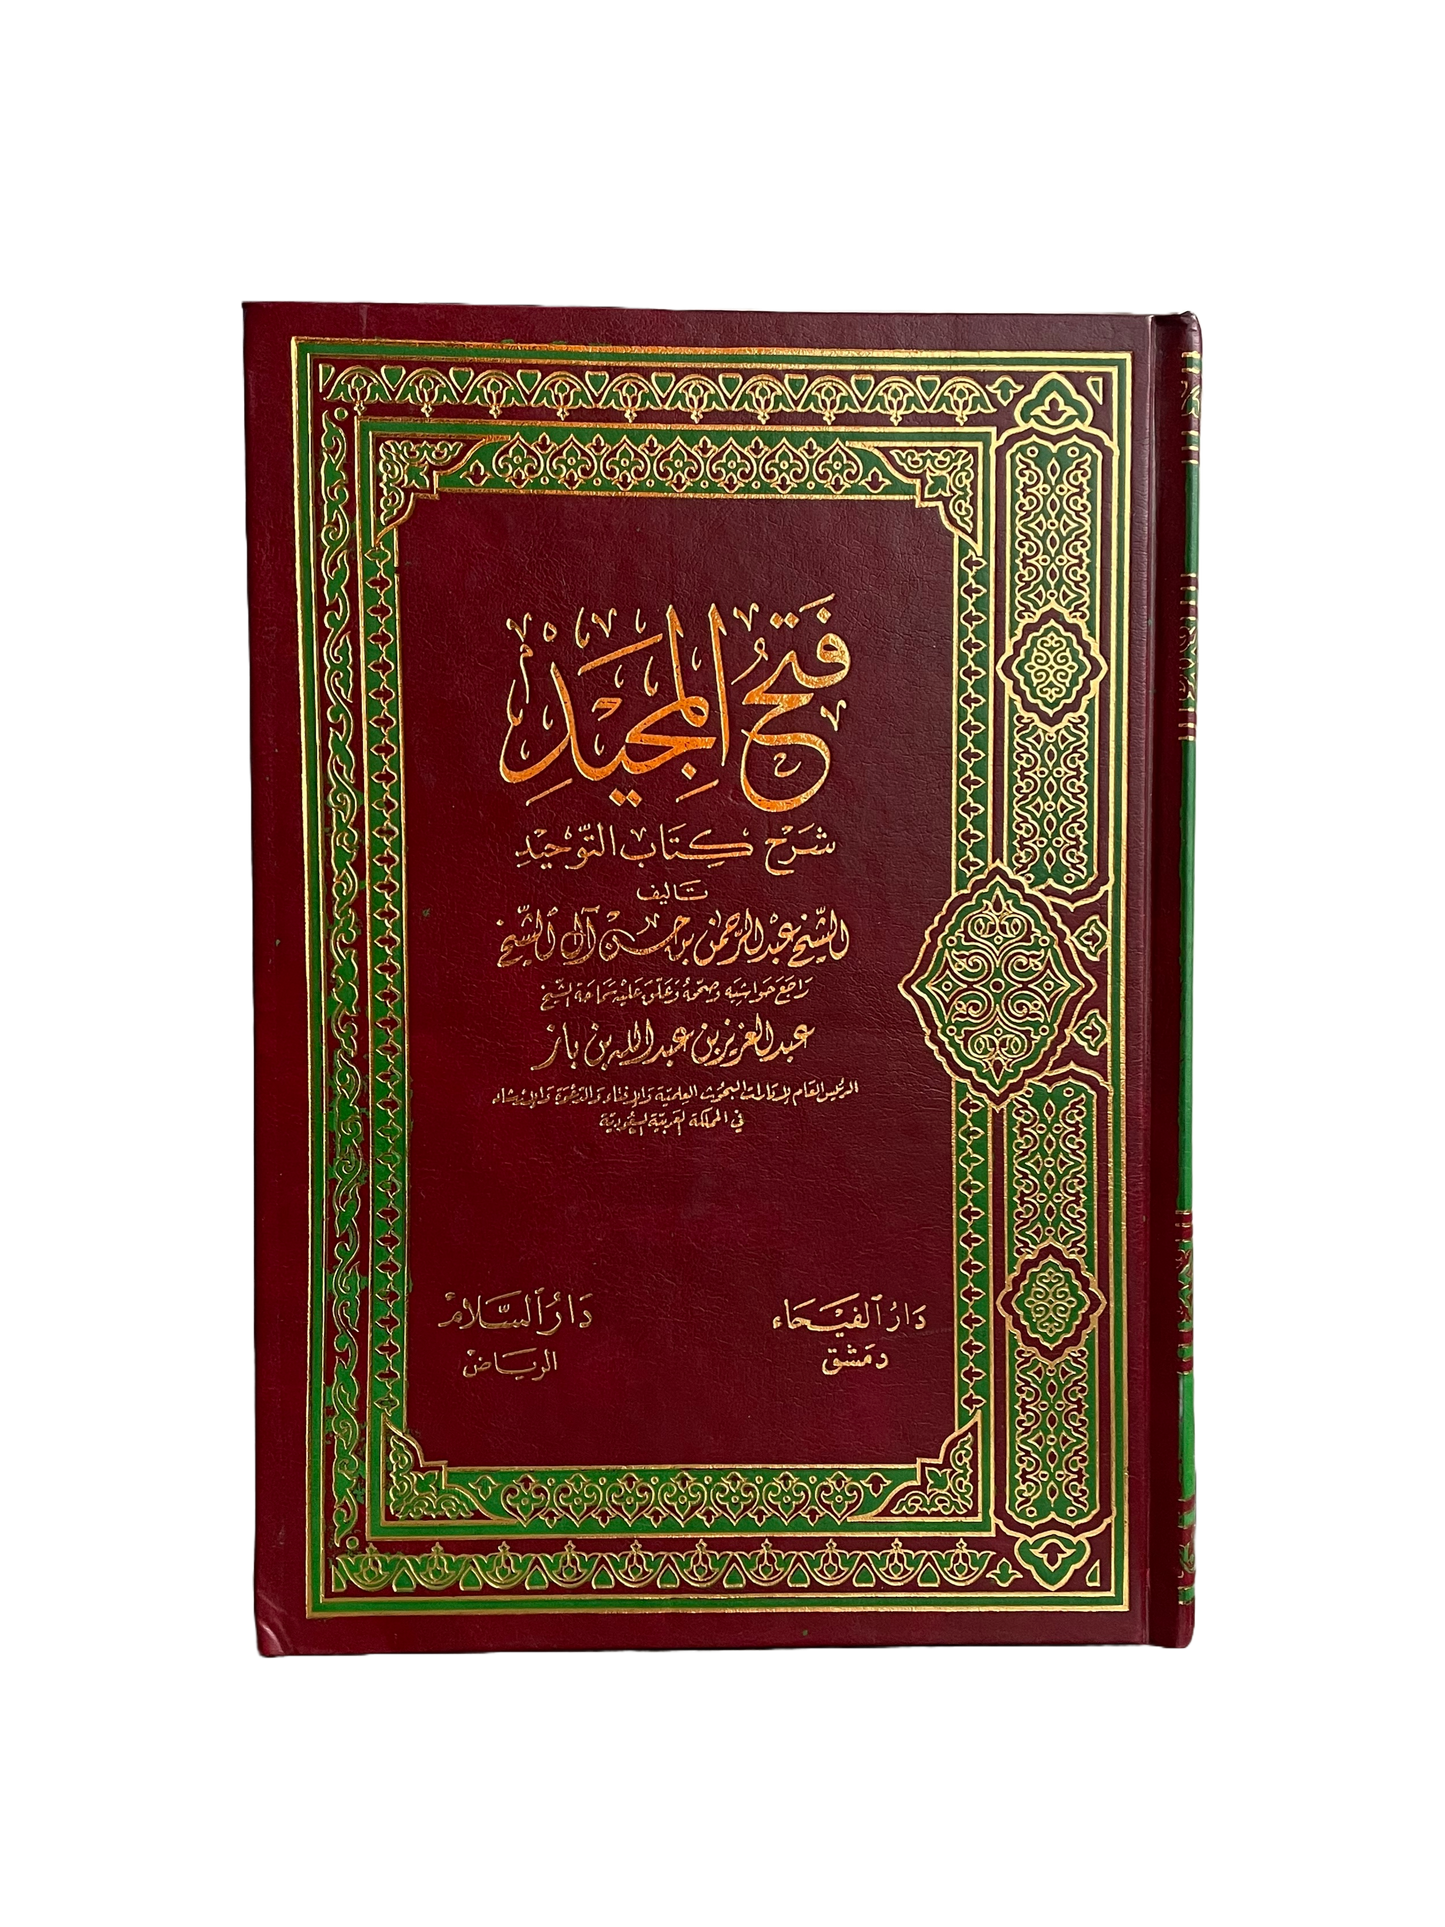 فَتْحُ المَجِيدِ
شَرْح كِتَاب التَّوْحِيدِ
تَأليف
الشَّيْخ عَبْد الرَّحمٰن بن حسَن آل الشَّيْخ
رَاجَعَ حَوَاشِيَه وَصَحّحَهُ وَعَلّقَ عَلَيْه سَمَاحَة الشَّيْخ
عبد العزيز بن عبد الله بن باز
الرئيس العَام لإدارات البحُوث العِلميّة وَالإفتاء وَالدّعْوَة وَالإرشاد
في المملكة العَربيّة السّعُوديّة
دَارُ الفَيْحَاء
دمَشق
دَارُ السَّلَام
الريَاض